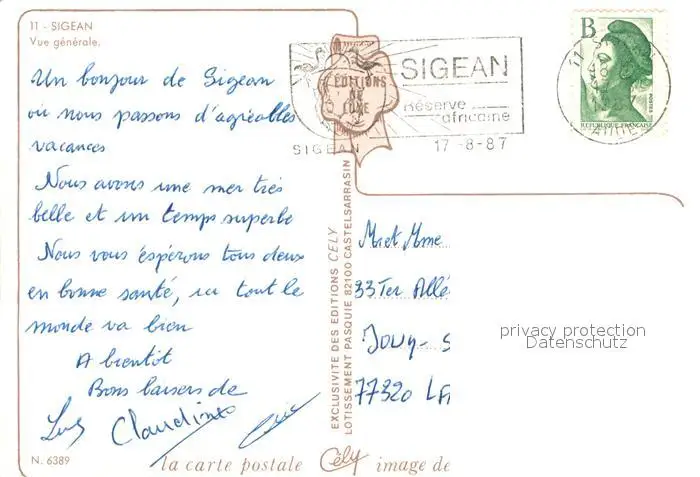 11 - SIGEAN
Vue générale.
Un bonjour de Sigean
où nous passons d'agréables
vacances
Nous avons une mer très
belle et un temps superbe
Nous vous éspérons tous deux
en bonne santé, ici tout le
monde va bien
A bientôt
Bons baisers de
Claudine
N. 6389
ÉDITIONS
DE
LUXE
SIGEAN
Réserve
africaine
SIGEAN
17-8-87
11
AUDE
B
POSTES
REPUBLIQUE FRANÇAISE
EXCLUSIVITE DES EDITIONS CELY
LOTISSEMENT PASQUIE 82100 CASTELSARRASIN
M et Mme
33 Ter Allé
Jouy- S
77320 LA
privacy protection
Datenschutz
la carte postale Cély image de